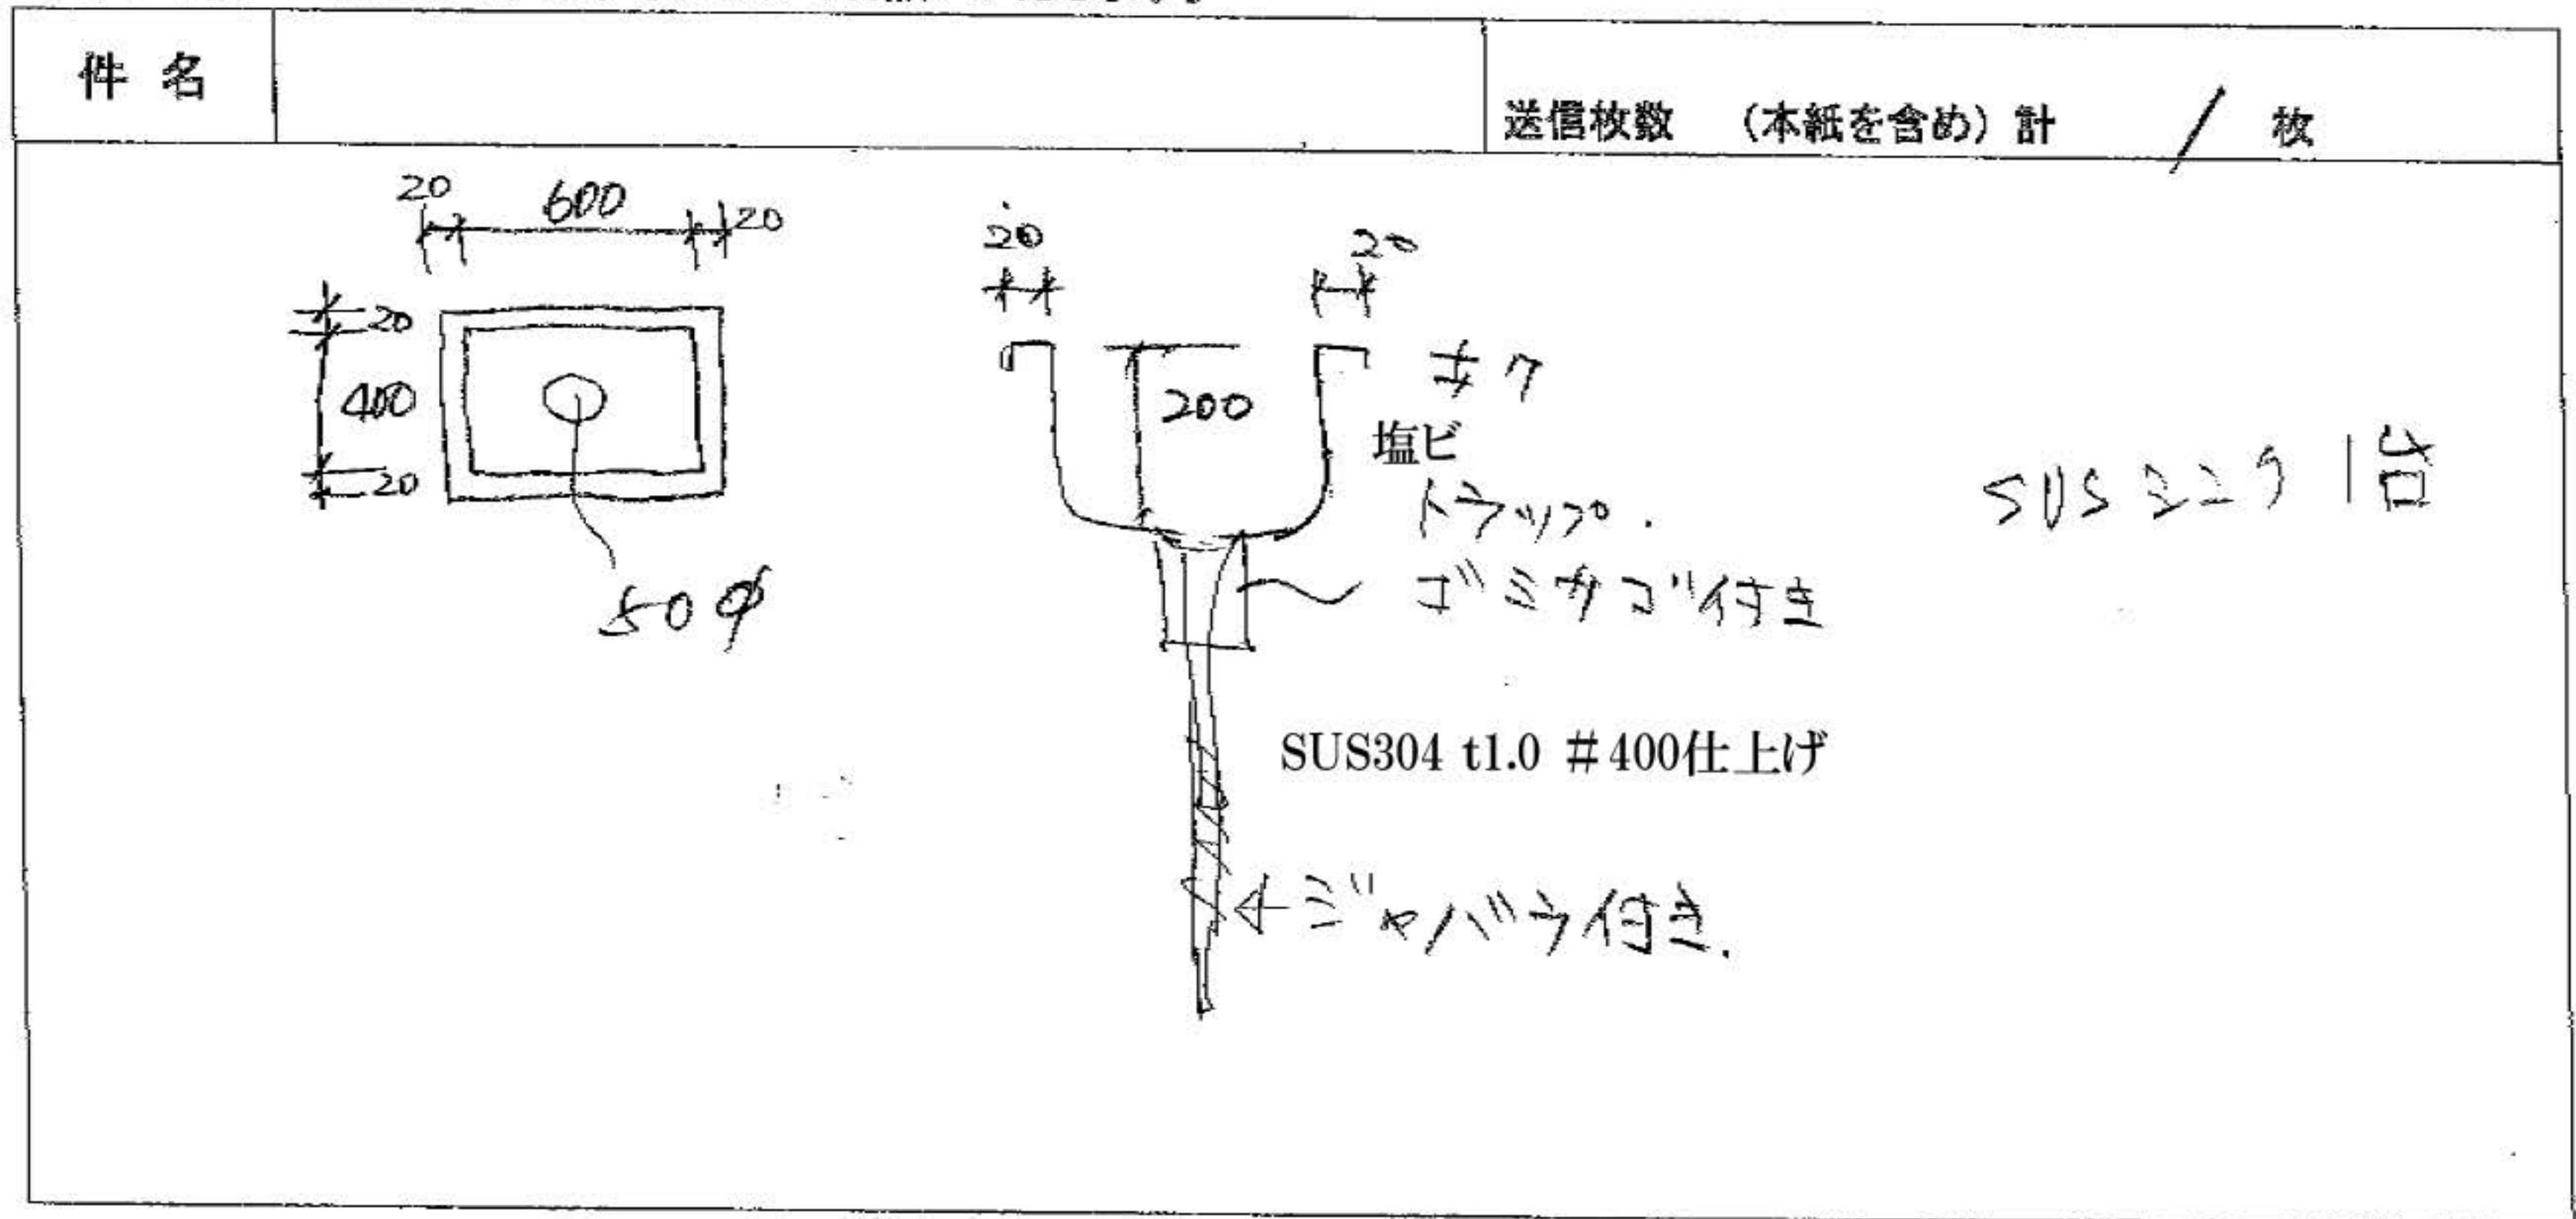 件名
送信枚数 （本紙を含め）計 / 枚
20 600 20
20
400
20
50φ
20 20
200
#7
塩ビ
トラップ.
ゴミカゴ付き
SUSシンク 1台
SUS304 t1.0 #400仕上げ
ジャバラ付き.